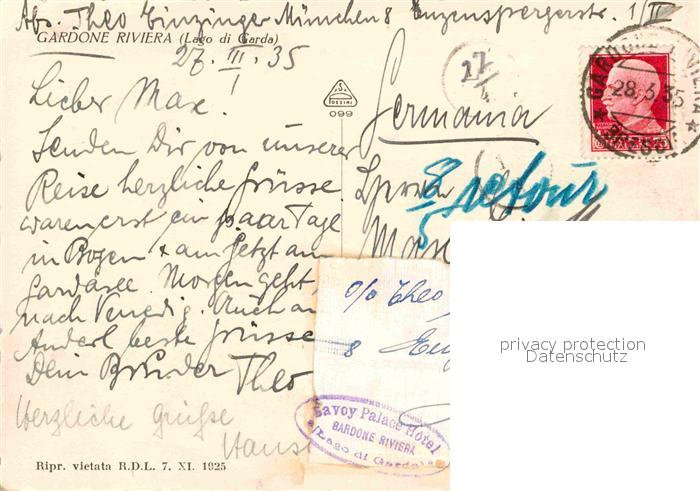 Abs. Theo Einzinger München 8 Enzenspergerstr. 1/II
GARDONE RIVIERA (Lago di Garda)
27. III. 35
Lieber Max!
Senden Dir von unserer
Reise herzliche Grüsse
waren erst ein paar Tage
in Bozen + am jetzt am
Gardasee. Morgen geht
nach Venedig. Auch an
Anderl beste Grüsse
Dein Bruder Theo
Herzliche Grüße
Hansi
Ripr. vietata R.D.L. 7. XI. 1925
FOSSINI
099
27
Germania
retour
Max
GARDONE RIVIERA
28.3.35
BRESCIA
c/o Theo
8
Savoy Palace Hotel
GARDONE RIVIERA
(Lago di Garda)
privacy protection
Datenschutz